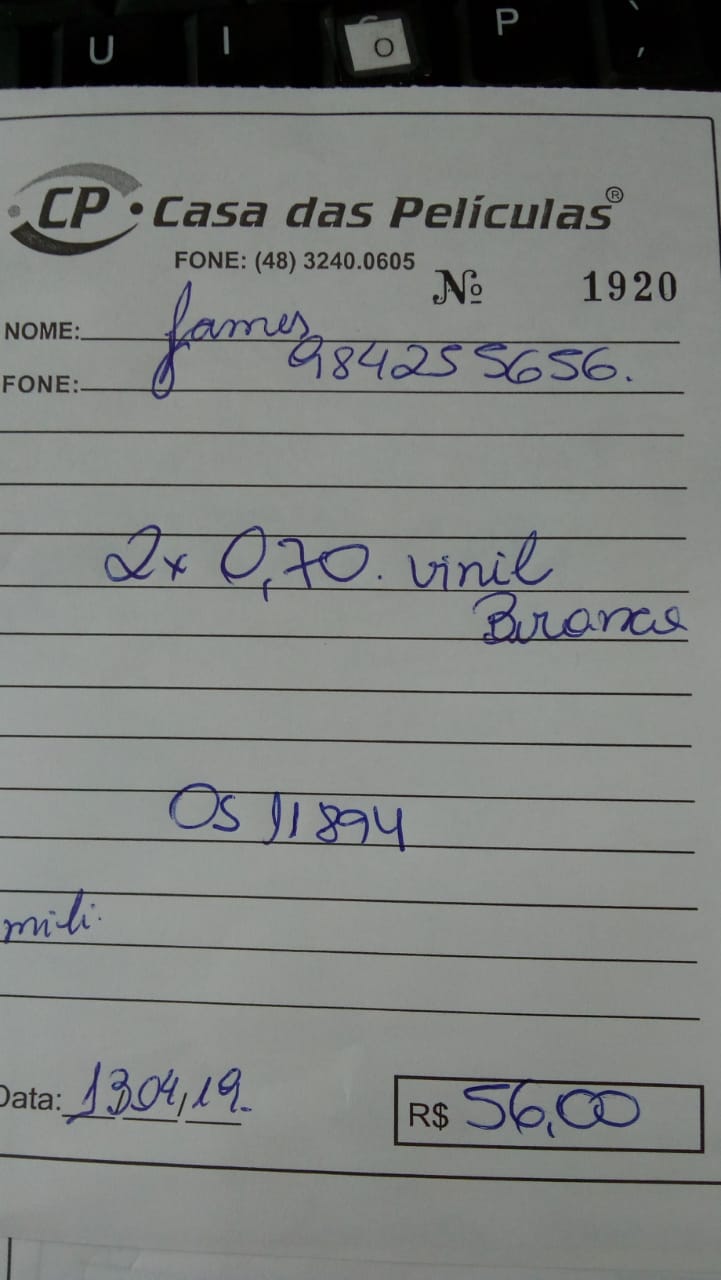 U I O P
CP • Casa das Películas®
FONE: (48) 3240.0605
Nº 1920
NOME: James
FONE: 984255656.
2x 0,70. vinil
Branco
OS 11894
mili.
Data: 13 04, 19.
R$ 56,00